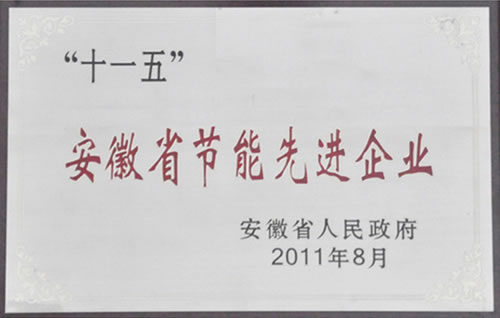 “十一五”
安徽省节能先进企业
安徽省人民政府
2011年8月